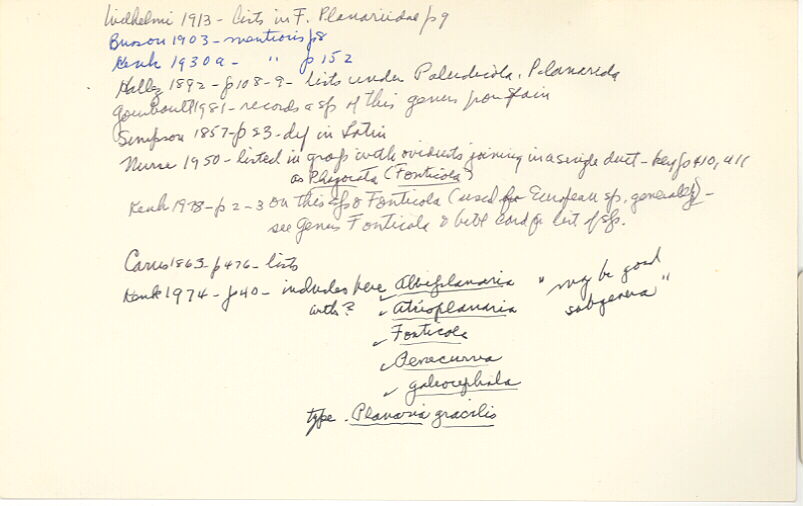 Wilhelmi 1913 - lists in F. Planariidae p 9
1903 - mentions p8
Kenk 1930a - " p 152
Hallez 1892 - p 108-9 - lists under Paludicola, Planarida
Gourbault 1981 - records a sp of this genus from Spain
Simpson 1857 - p 23 - def in Latin
Nurse 1950 - listed in group with oviducts joining in a single duct - key p 410, 411
as Phagocata (Fonticola)
Kenk 1978 - p 2-3 on this sp & Fonticola (used for European sp. generally) -
see genus Fonticola & card for list of sps.
Carus 1863 - p 476 - lists
Kenk 1974 - p 40 - includes here Albiplanaria "may be good
with? ✓ Atrioplanaria subgenera"
✓ Fonticola
✓ Penecurva
✓ Galeocephala
type - Planaria gracilis